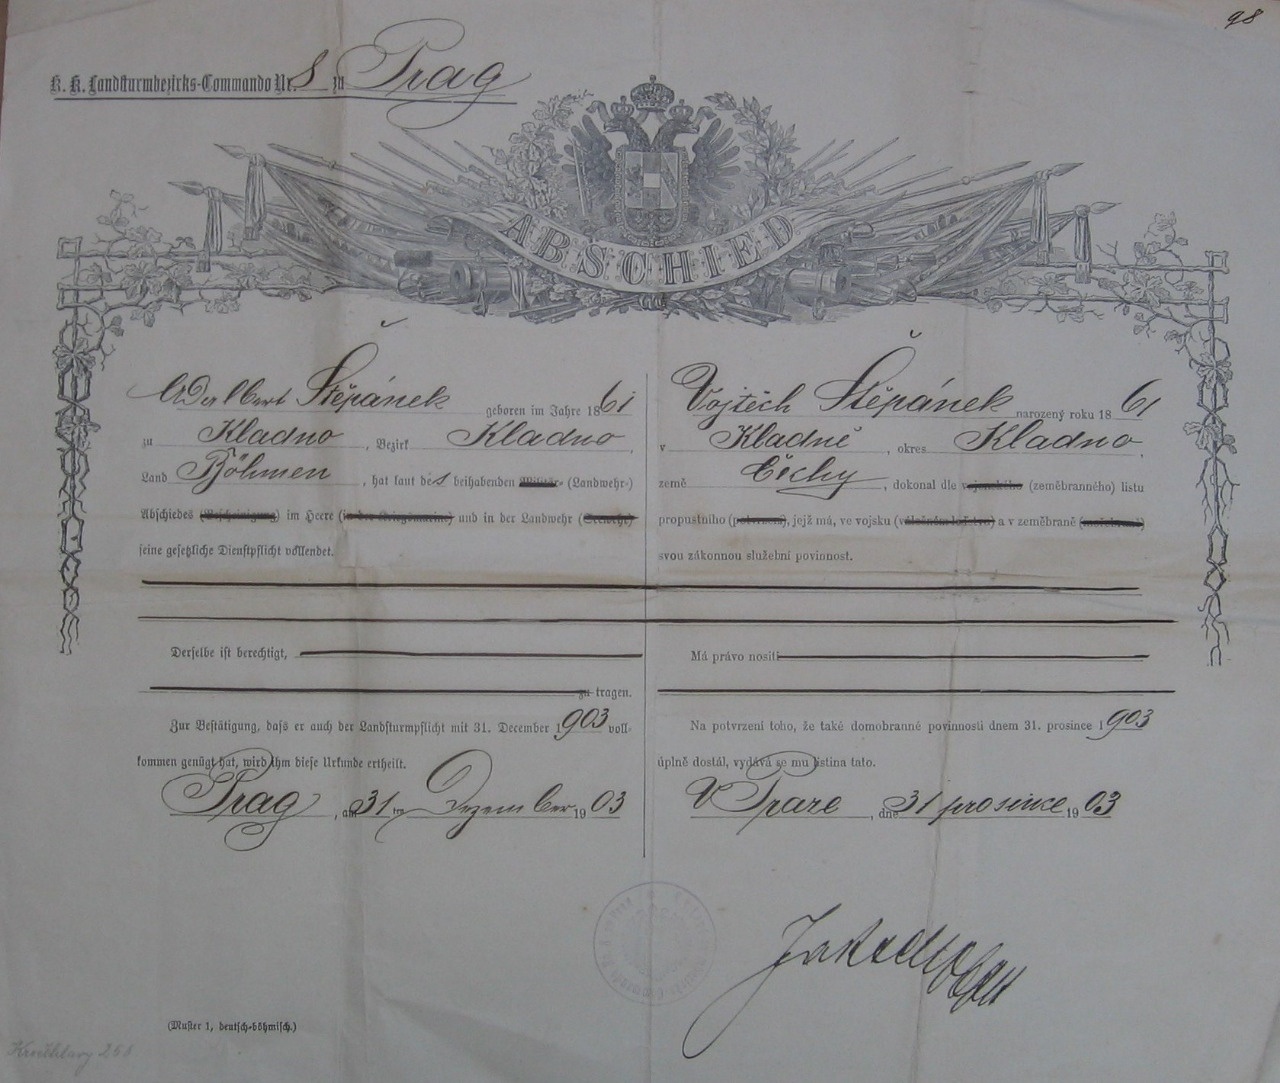 98
K. K. Landsturmbezirks-Commando Nr. 8 zu Prag
ABSCHIED
Adalbert Štěpánek geboren im Jahre 1861
zu Kladno, Bezirk Kladno,
Land Böhmen, hat laut des beihabenden Militär- (Landwehr-)
Abschiedes (Bescheinigung) im Heere (in der Kriegsmarine) und in der Landwehr (Seewehr)
seine gesetzliche Dienstpflicht vollendet.
Derselbe ist berechtigt,
zu tragen.
Zur Bestätigung, dass er auch der Landsturmpflicht mit 31. December 1903 voll-
kommen genügt hat, wird ihm diese Urkunde ertheilt.
Prag, am 31ten Dezember 1903
Vojtěch Štěpánek narozený roku 1861
v Kladně, okres Kladno,
země Čechy, dokonal dle vojenského (zeměbranného) listu
propustního (potvrzení), jejž má, ve vojsku (válečném loďstvu) a v zeměbraně
svou zákonnou služební povinnost.
Má právo nositi
Na potvrzení toho, že také domobranné povinnosti dnem 31. prosince 1903
úplně dostál, vydává se mu listina tato.
V Praze, dne 31 prosince 1903
(Muster 1, deutsch-böhmisch.)